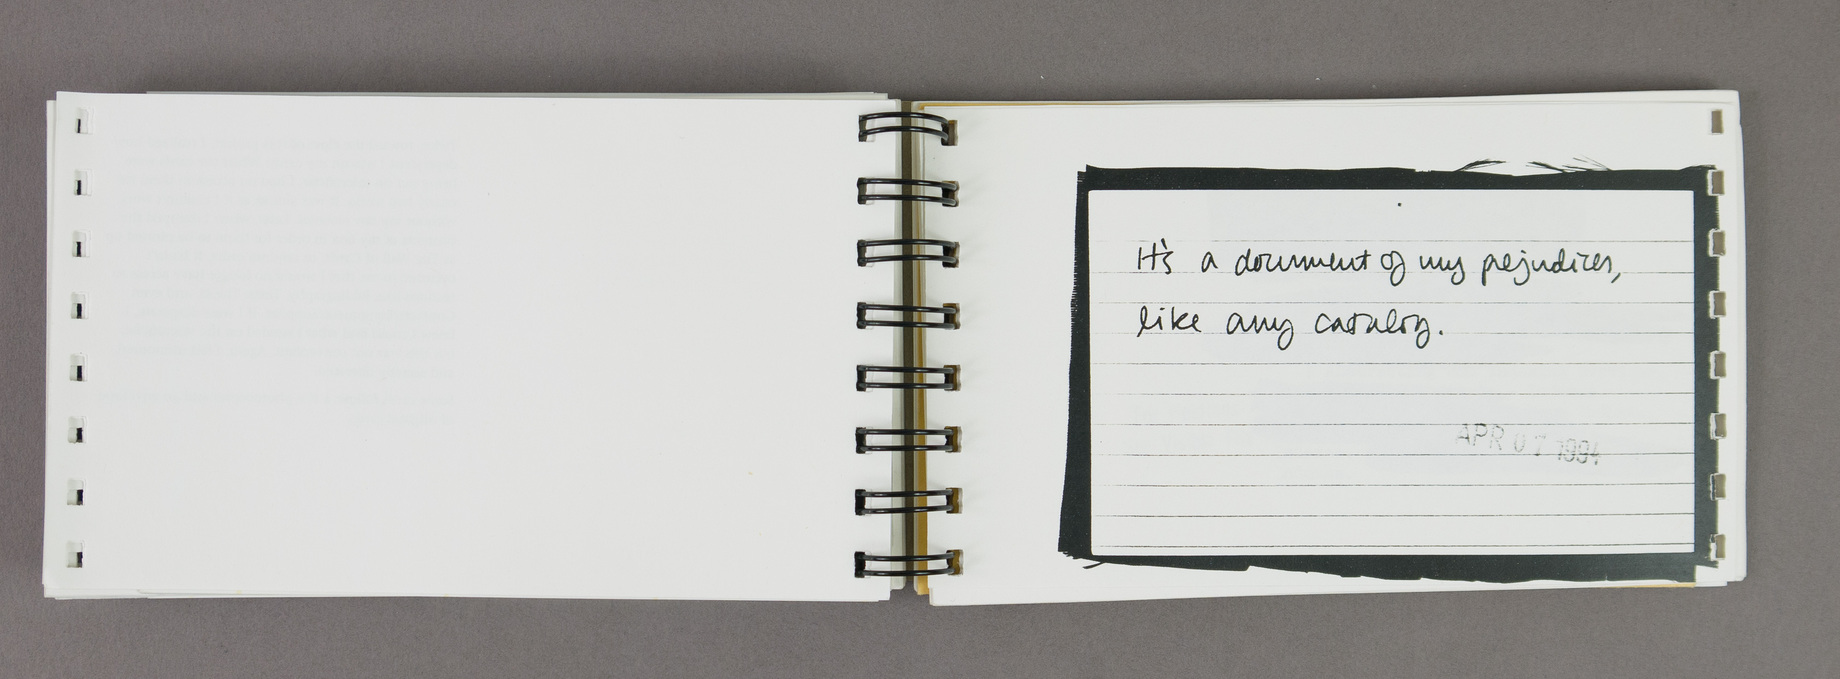 It's a document of my prejudices,
like any catalog.
APR 07 1994